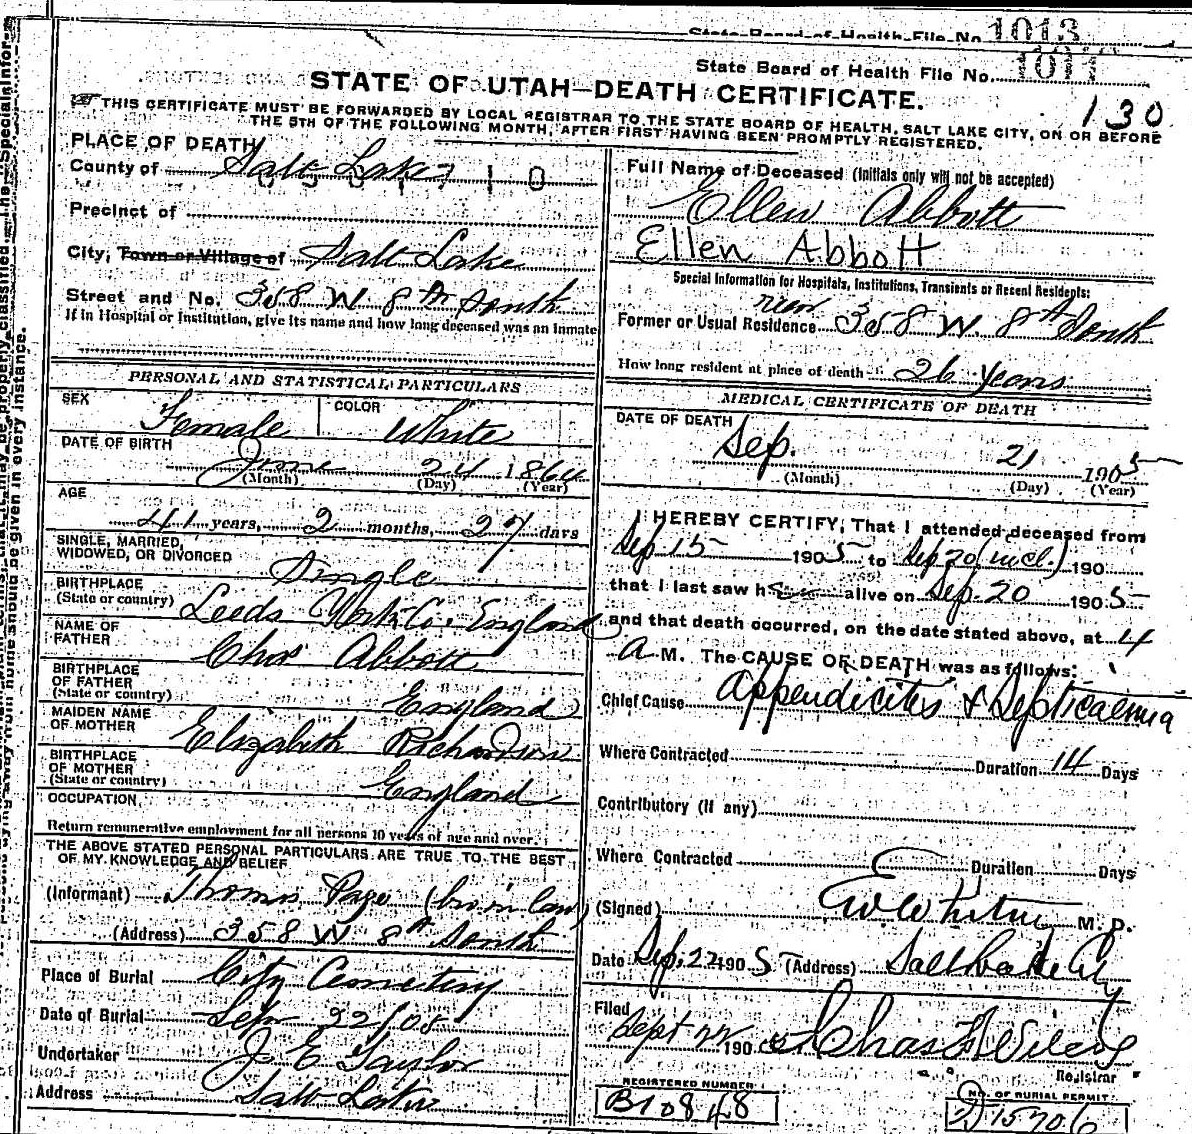 1013
State Board of Health File No.
State Board of Health File No.
STATE OF UTAH—DEATH CERTIFICATE.
130
THIS CERTIFICATE MUST BE FORWARDED BY LOCAL REGISTRAR TO THE STATE BOARD OF HEALTH, SALT LAKE CITY, ON OR BEFORE
THE 5TH OF THE FOLLOWING MONTH, AFTER FIRST HAVING BEEN PROMPTLY REGISTERED.
PLACE OF DEATH
County of Salt Lake
Precinct of
City, Town or Village of Salt Lake
Street and No. 358 W 8th South
If in Hospital or Institution, give its name and how long deceased was an inmate
PERSONAL AND STATISTICAL PARTICULARS
SEX Female COLOR White
DATE OF BIRTH
June 24 1864
(Month) (Day) (Year)
AGE
41 years, 2 months, 27 days
SINGLE, MARRIED,
WIDOWED, OR DIVORCED Single
BIRTHPLACE
(State or country) Leeds York Co. England
NAME OF
FATHER Chas Abbott
BIRTHPLACE
OF FATHER
(State or country) England
MAIDEN NAME
OF MOTHER Elizabeth Richardson
BIRTHPLACE
OF MOTHER
(State or country) England
OCCUPATION
Return remunerative employment for all persons 10 years of age and over.
THE ABOVE STATED PERSONAL PARTICULARS ARE TRUE TO THE BEST
OF MY KNOWLEDGE AND BELIEF
(Informant) Thomas Page (bro in law)
(Address) 358 W 8th South
Place of Burial City Cemetery
Date of Burial Sep 22/05
Undertaker J E Taylor
Address Salt Lake
Full Name of Deceased (Initials only will not be accepted)
Ellen Abbott
Ellen Abbott
Special Information for Hospitals, Institutions, Transients or Recent Residents:
rear
Former or Usual Residence 358 W 8th South
How long resident at place of death 26 years
MEDICAL CERTIFICATE OF DEATH
DATE OF DEATH
Sep. 21 1905
(Month) (Day) (Year)
I HEREBY CERTIFY, That I attended deceased from
Sep 15 1905 to Sep 20 (incl.) 190
that I last saw her alive on Sep. 20 1905
and that death occurred, on the date stated above, at 4
A. M. The CAUSE OF DEATH was as follows:
Chief Cause Appendicites & Septicaemia
Where Contracted Duration 14 Days
Contributory (if any)
Where Contracted Duration Days
(Signed) M. D.
Date Sep. 22 1905 (Address) Salt Lake City
Filed
Sept 22 190
Registrar
REGISTERED NUMBER
B10848
NO. OF BURIAL PERMIT
D 15706